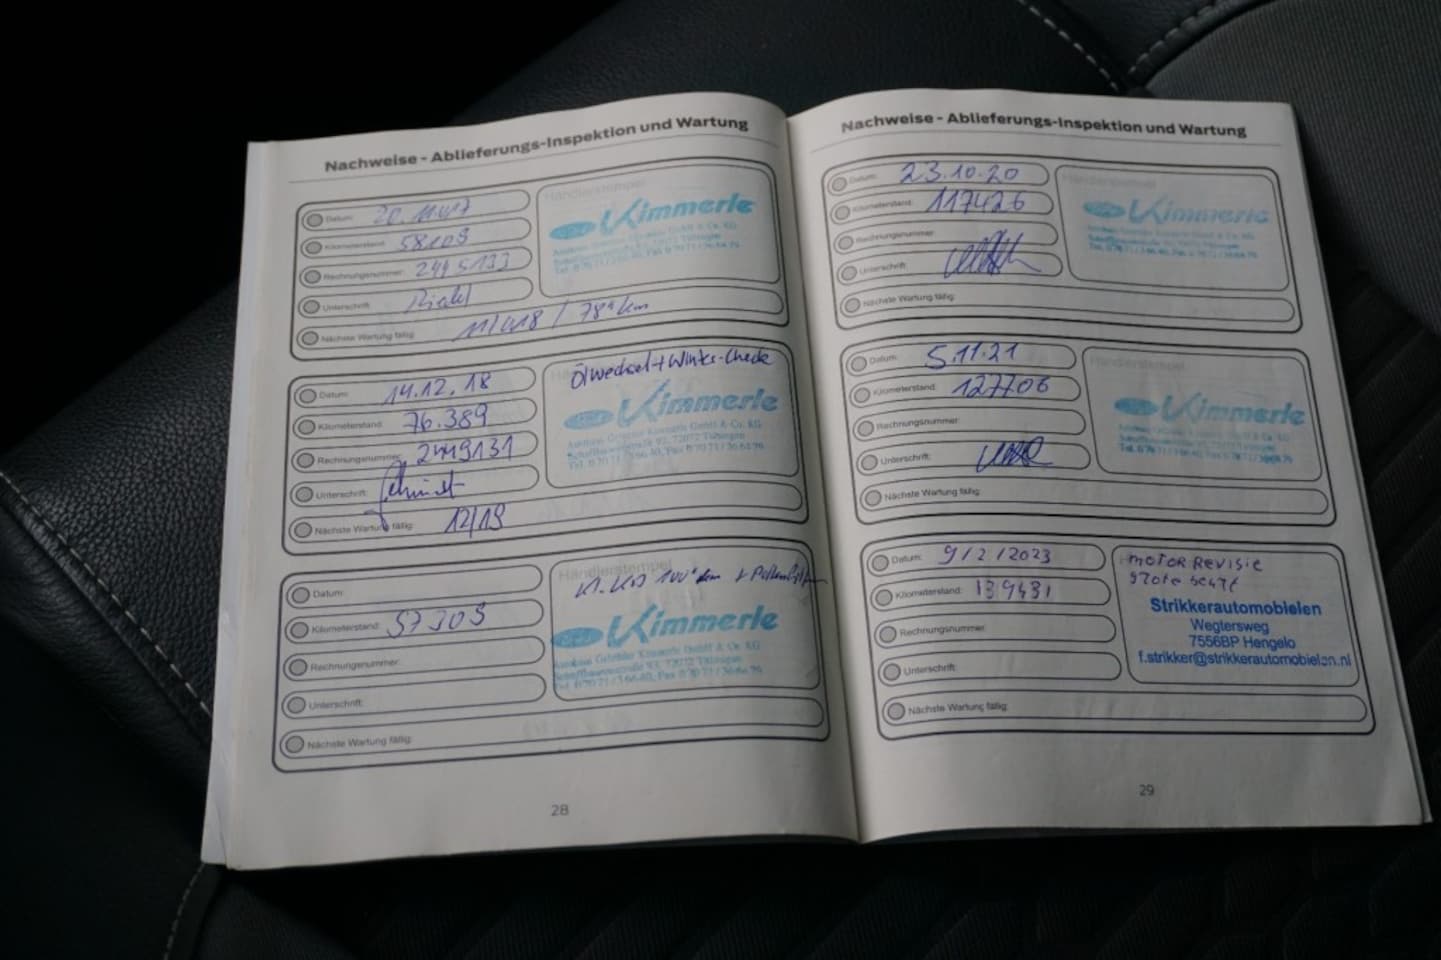 Nachweise - Ablieferungs-Inspektion und Wartung
Datum: 20.11.17
Kilometerstand: 58109
Rechnungsnummer: 2445133
Unterschrift:
Nächste Wartung fällig: 11/2018 / 78 km
Händlerstempel
Kimmerle
Datum: 14.12.18
Kilometerstand: 76.389
Rechnungsnummer: 2449131
Unterschrift: Schmidt
Nächste Wartung fällig: 12/19
Ölwechsel + Winter-Check
Kimmerle
Autohaus Gebrüder Kimmerle GmbH & Co. KG
Schaffhausenstraße 93, 72072 Tübingen
Tel. 0 70 71 / 3 66 40, Fax 0 70 71 / 36 64 76
Datum:
Kilometerstand:
Rechnungsnummer:
Unterschrift:
Nächste Wartung fällig:
Händlerstempel
Kimmerle
Autohaus Gebrüder Kimmerle GmbH & Co. KG
Schaffhausenstraße 93, 72072 Tübingen
Tel. 0 70 71 / 3 66 40, Fax 0 70 71 / 36 64 76
28
Nachweise - Ablieferungs-Inspektion und Wartung
Datum: 23.10.20
Kilometerstand: 117426
Rechnungsnummer:
Unterschrift:
Nächste Wartung fällig:
Händlerstempel
Kimmerle
Datum: 5.11.21
Kilometerstand: 127706
Rechnungsnummer:
Unterschrift:
Nächste Wartung fällig:
Händlerstempel
Kimmerle
Datum: 9/2/2023
Kilometerstand: 139431
Rechnungsnummer:
Unterschrift:
Nächste Wartung fällig:
MOTOR REVISIE
grote beurt
Strikkerautomobielen
Wegtersweg
7556BP Hengelo
f.strikker@strikkerautomobielen.nl
29